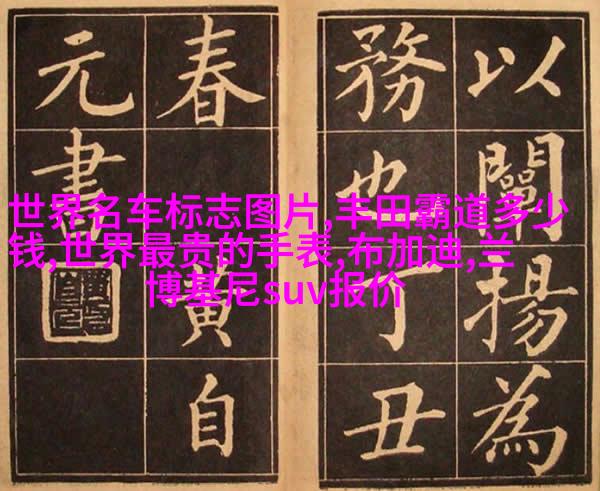 以闡揚為
務也丁丑
春 黃自
元書
世界名车标志图片,丰田霸道多少
钱,世界最贵的手表,布加迪,兰
博基尼suv报价